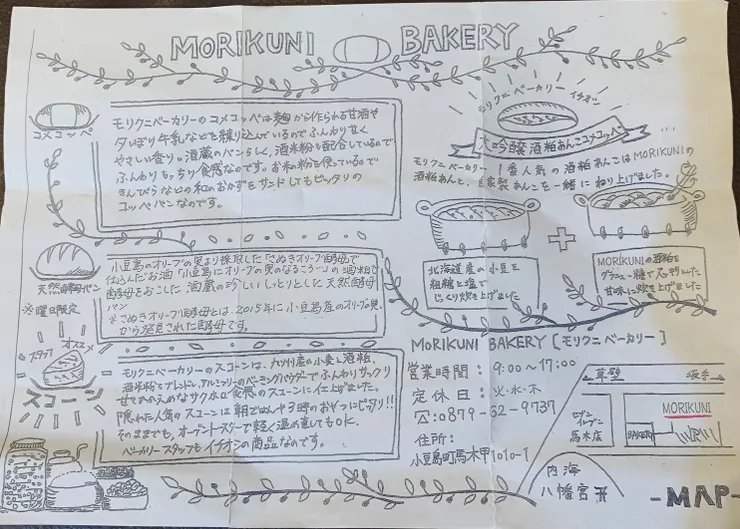 MORIKUNI BAKERY
コメコッペ
モリクニベーカリーのコメコッペは麹から作られる甘酒や
夕っぽり牛乳などを練り込んでいるのでふんわり甘く
やさしい香り。酒蔵のパンらしく、酒米粉も配合しているので
ふんわりもっちり食感なのです。お米の粉を使っているので
きんぴらなどの和のおかずをサンドしてもピッタリの
コッペパンなのです。
天然酵母パン
※曜日限定
小豆島のオリーブの実より採取した「さぬきオリーブ酵母で
仕込んだお酒「小豆島にオリーブの実のなるころ…」の酒粕で
酵母をおこした酒蔵の珍しいしっとりとした天然酵母
パン
※さぬきオリーブ酵母とは、2015年に小豆島産のオリーブの実
から発見された酵母です。
スタッフ オススメ
スコーン
モリクニベーカリーのスコーンは、九州産の小麦と酒粕、
酒米粉でブレンド。アルミフリーのベーキングパウダーでふんわりサックリ
甘さひかえめなサクホロ食感のスコーンに仕上げました。
隠れた人気のスコーンは朝ごはんや3時のおやつにぴったり!!
そのままでも、オーブントースターで軽く温め直してもOK.
ベーカリースタッフもイチオシの商品なのです。
モリクニ ベーカリー イチオシ
大吟醸酒粕あんこコメコッペ
モリクニベーカリー 1番人気の酒粕あんこはMORIKUNIの
酒粕あんと、自家製あんこを一緒にねり上げました。
北海道産の小豆を
粗糖と塩で
じっくり炊き上げました
MORIKUNIの酒粕を
グラニュー糖で
甘味に炊き上げました
MORIKUNI BAKERY [モリクニベーカリー]
営業時間: 9:00〜17:00
定休日: 火・水・木
☎:0879-62-9737
住所:
小豆島町馬木甲1010-1
← 草壁 坂手 →
セブン
イレブン
馬木店
MORIKUNI
BAKERY
内海
八幡宮
-MAP-